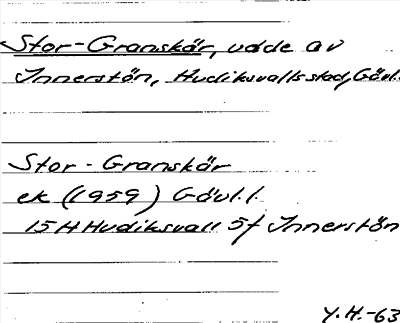 Stor-Granskär, udde av
Innerstön, Hudiksvalls stad, Gävl.
Stor-Granskär
ek (1959) Gävl.l.
15H Hudiksvall 5f Innerstön
Y.H.-63